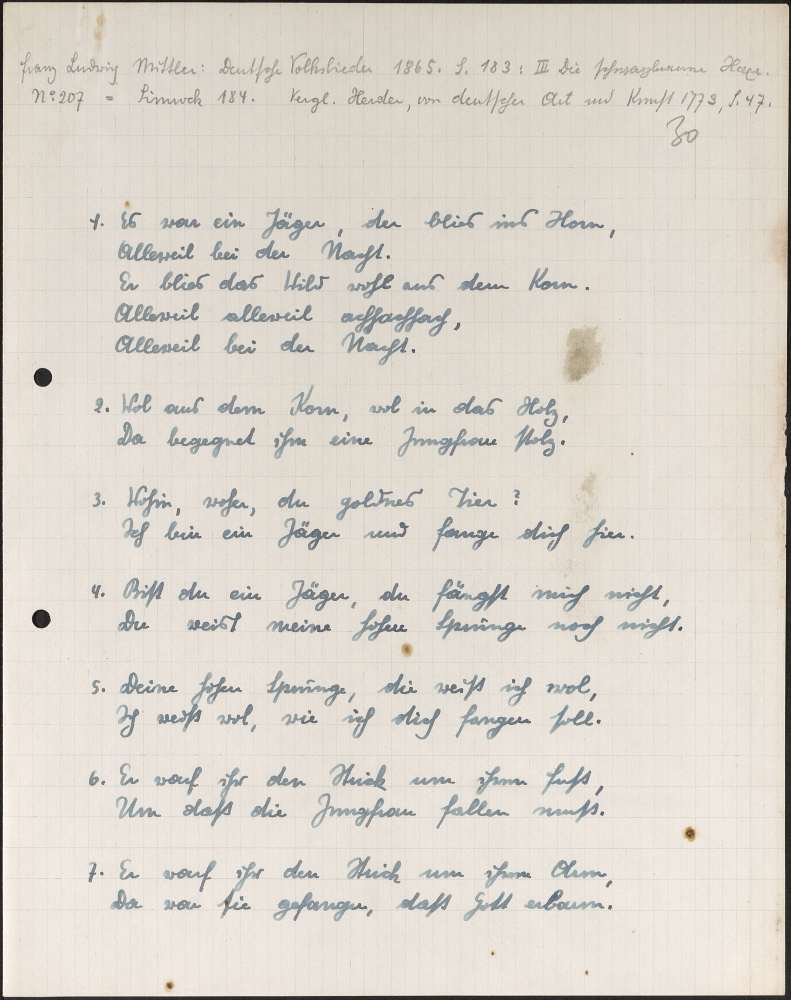 Franz Ludwig Mittler: Deutsche Volkslieder 1865. S. 183: III Die schwarzbraune Hexe.
No 207 = Simrock 184. Vergl. Herder, von deutscher Art und Kunst 1773, S. 47.
30
1. Es war ein Jäger, der blies ins Horn,
Alleweil bei der Nacht.
Er blies das Wild wohl aus dem Korn.
Alleweil alleweil achhachhach,
Alleweil bei der Nacht.
2. Wol aus dem Korn, wol in das Holz,
Da begegnet ihm eine Jungfrau stolz.
3. Wohin, woher, du goldnes Tier?
Ich bin ein Jäger und fange dich hier.
4. Bist du ein Jäger, du fängst mich nicht,
Du weist meine hohen Sprünge noch nicht.
5. Deine hohen Sprünge, die weiß ich wol,
Ich weiß wol, wie ich dich fangen soll.
6. Er warf ihr den Strick um ihren Fuß,
Um daß die Jungfrau fallen muß.
7. Er warf ihr den Strick um ihren Arm,
Da war sie gefangen, daß Gott erbarm.